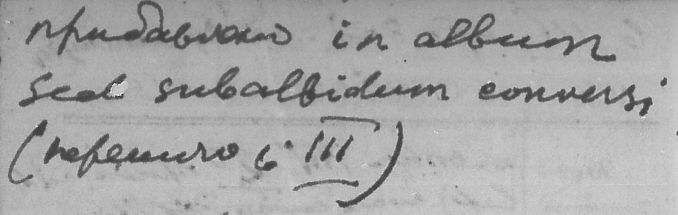 прибавляю in album
sed subalbidum conversi
(перешло в III)